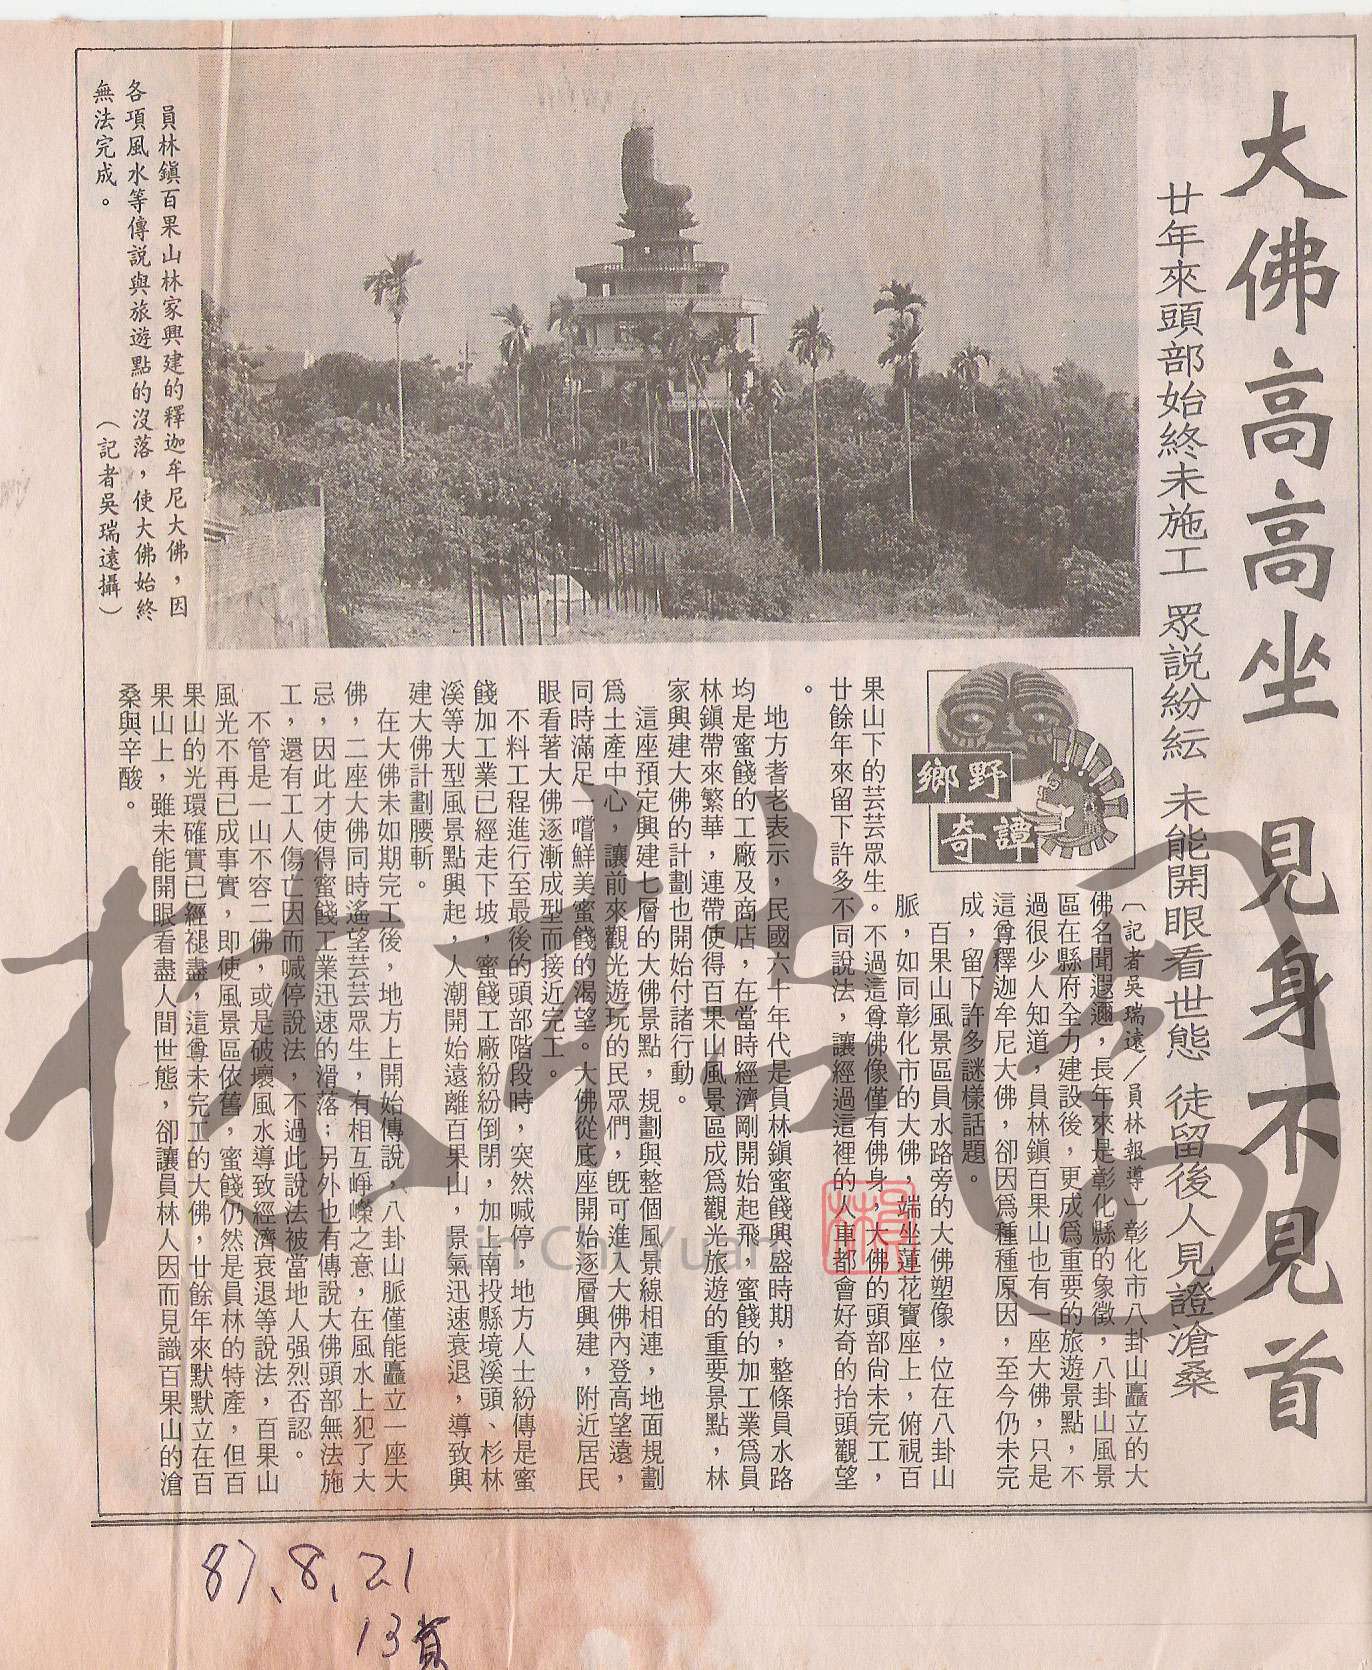 大佛高高坐 見身不見首
廿年來頭部始終未施工 眾說紛紜 未能開眼看世態 徒留後人見證滄桑
鄉野
奇譚
〔記者吳瑞遠／員林報導〕彰化市八卦山矗立的大
佛名聞遐邇，長年來是彰化縣的象徵，八卦山風景
區在縣府全力建設後，更成為重要的旅遊景點，不
過很少人知道，員林鎮百果山也有一座大佛，只是
這尊釋迦牟尼大佛，卻因為種種原因，至今仍未完
成，留下許多謎樣話題。
百果山風景區員水路旁的大佛塑像，位在八卦山
脈，如同彰化市的大佛，端坐蓮花寶座上，俯視百
果山下的芸芸眾生。不過這尊佛像僅有佛身，大佛的頭部尚未完工，
廿餘年來留下許多不同說法，讓經過這裡的人車都會好奇的抬頭觀望
。
地方耆老表示，民國六十年代是員林鎮蜜餞興盛時期，整條員水路
均是蜜餞的工廠及商店，在當時經濟剛開始起飛，蜜餞的加工業為員
林鎮帶來繁華，連帶使得百果山風景區成為觀光旅遊的重要景點，林
家興建大佛的計劃也開始付諸行動。
這座預定興建七層的大佛景點，規劃與整個風景線相連，地面規劃
為土產中心，讓前來觀光遊玩的民眾們，既可進入大佛內登高望遠，
同時滿足一嚐鮮美蜜餞的渴望。大佛從底座開始逐層興建，附近居民
眼看著大佛逐漸成型而接近完工。
不料工程進行至最後的頭部階段時，突然喊停，地方人士紛傳是蜜
餞加工業已經走下坡，蜜餞工廠紛紛倒閉，加上南投縣境溪頭、杉林
溪等大型風景點興起，人潮開始遠離百果山，景氣迅速衰退，導致興
建大佛計劃腰斬。
在大佛未如期完工後，地方上開始傳說，八卦山脈僅能矗立一座大
佛，二座大佛同時遙望芸芸眾生，有相互崢嶸之意，在風水上犯了大
忌，因此才使得蜜餞工業迅速的滑落；另外也有傳說大佛頭部無法施
工，還有工人傷亡因而喊停說法，不過此說法被當地人強烈否認。
不管是一山不容二佛，或是破壞風水導致經濟衰退等說法，百果山
風光不再已成事實，即使風景區依舊，蜜餞仍然是員林的特產，但百
果山的光環確實已經褪盡，這尊未完工的大佛，廿餘年來默默立在百
果山上，雖未能開眼看盡人間世態，卻讓員林人因而見識百果山的滄
桑與辛酸。
員林鎮百果山林家興建的釋迦牟尼大佛，因
各項風水等傳說與旅遊點的沒落，使大佛始終
無法完成。
（記者吳瑞遠攝）
Lin Chi Yuan
87、8、21
13頁